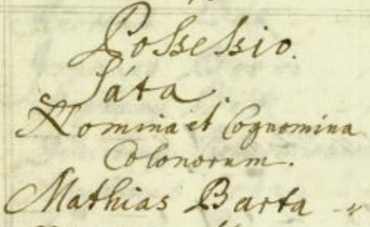 Possessio.
Sáta.
Nomina et Cognomina
Colonorum.
Mathias Barta